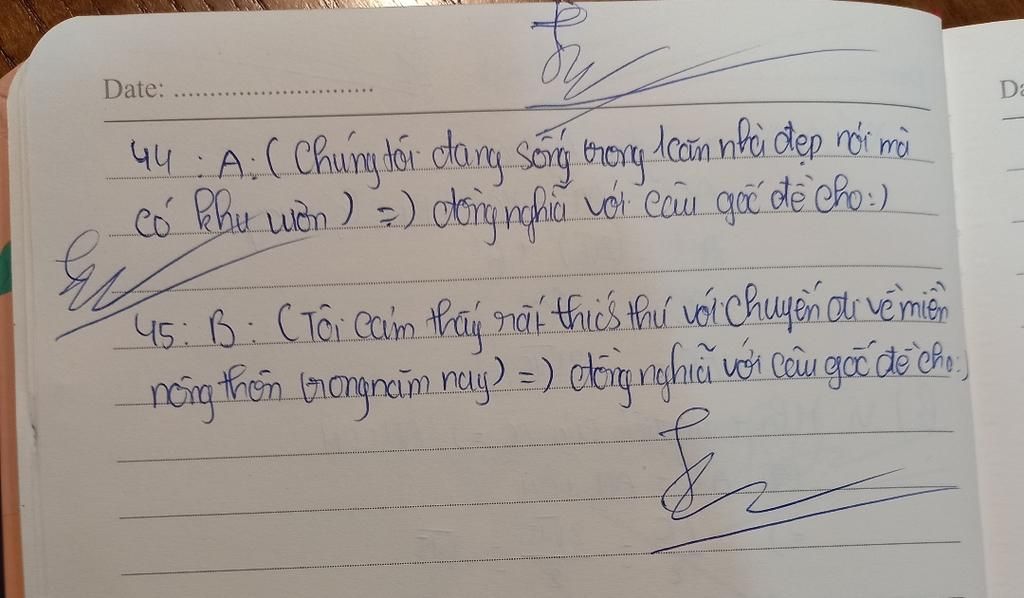 Date: ..............................
44 : A : ( Chúng tôi đang sống trong 1 căn nhà đẹp nơi mà
có khu vườn ) =) đồng nghĩa với câu gốc đề cho :)
45 : B : ( Tôi cảm thấy rất thích thú với chuyến đi về miền
nông thôn trong năm nay ) =) đồng nghĩa với câu gốc đề cho :)
Da